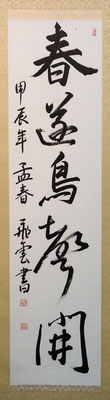 春逐鳥聲開
甲辰年 孟春 飛雲書